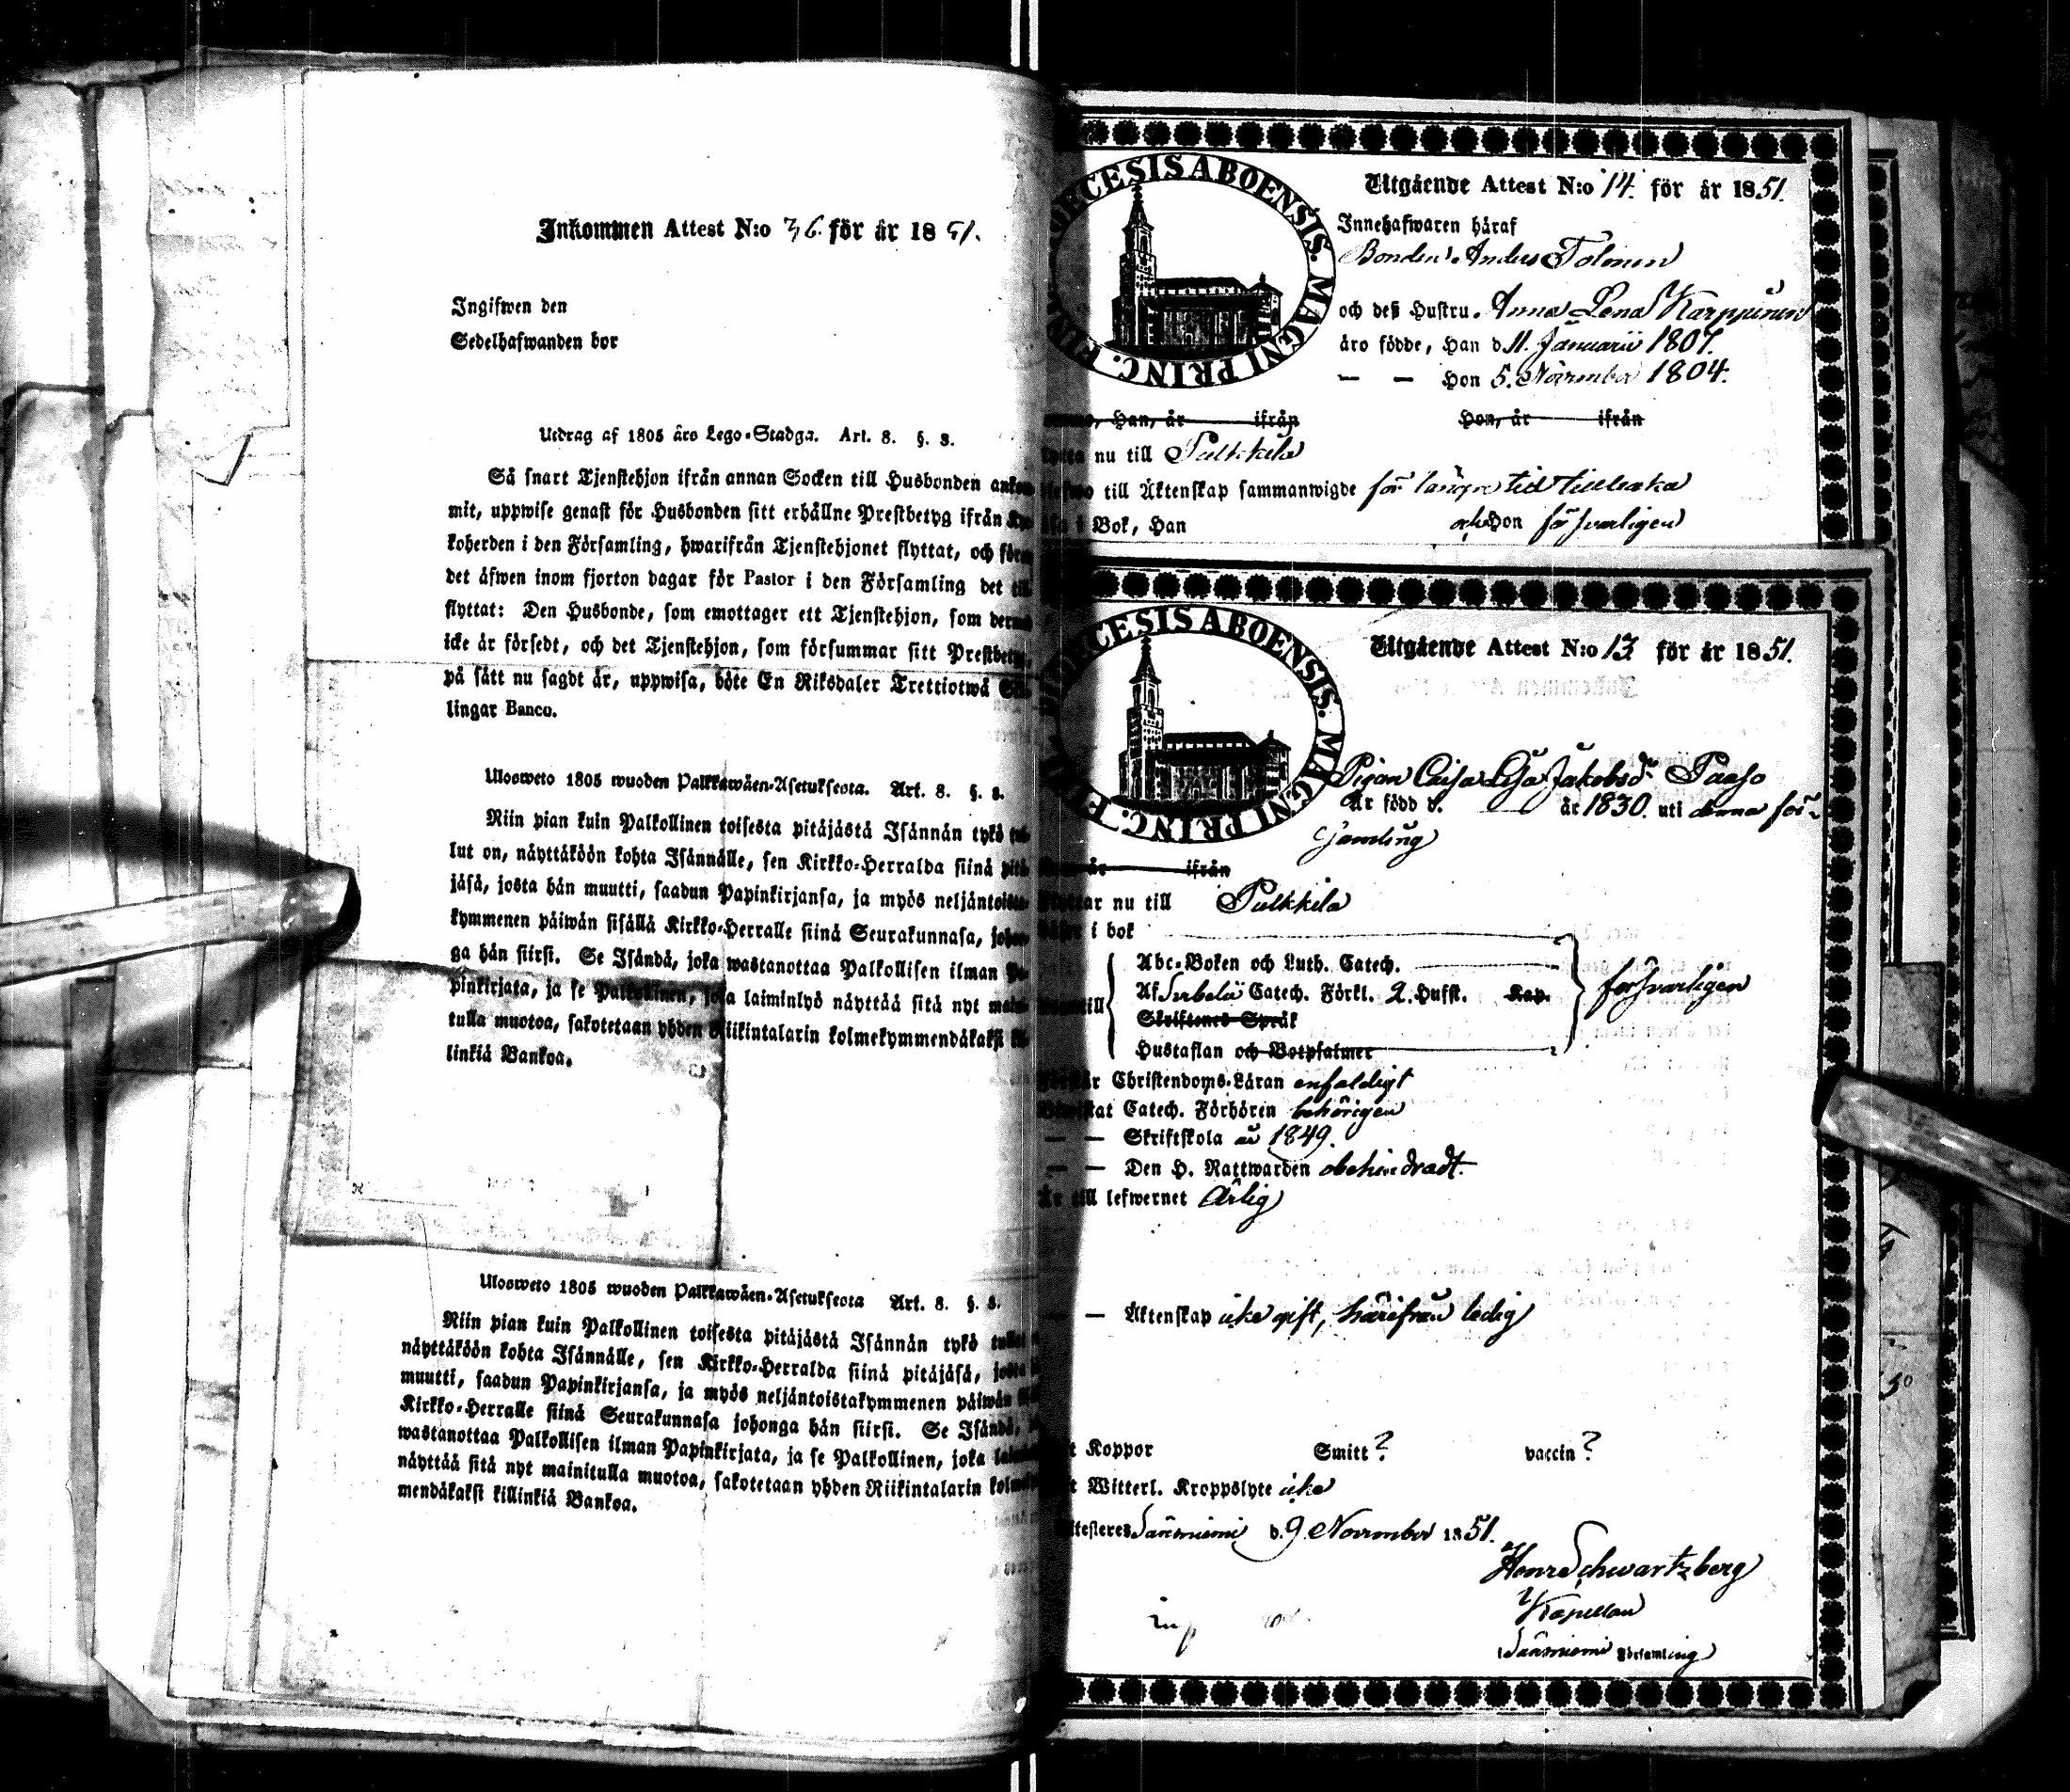 Inkommen Attest N:o 36. för år 1851.
Ingifwen den
Sedelhafwanden bor
Utdrag af 1805 års Lego-Stadga. Art. 8. §. 8.
Så snart Tjenstehjon ifrån annan Socken till Husbonden
mit, uppwise genast för Husbonden sitt erhållne Prestbetyg ifrån
koherden i den Församling, hwarifrån Tjenstehjonet flyttat, och
det äfwen inom fjorton dagar för Pastor i den Församling det
flyttat: Den Husbonde, som emottager ett Tjenstehjon, som
icke är försedt, och det Tjenstehjon, som försummar sitt Prestbetyg,
på sätt nu sagdt är, uppwisa, böte En Riksdaler Trettiotwå
lingar Banco.
Ulosweto 1805 wuoden Palkkawäen-Asetuksesta. Art. 8. §. 8.
Niin pian kuin Palkollinen toisesta pitäjästä Isännän tykö
lut on, näyttäköön kohta Isännälle, sen Kirkko-Herralda siinä
jäsä, josta hän muutti, saadun Papinkirjansa, ja myös neljäntoista-
kymmenen päiwän sisällä Kirkko-Herralle siinä Seurakunnasa, johon-
ga hän siirsi. Se Isändä, joka wastanottaa Palkollisen ilman
pinkirjata, ja se Palkollinen, joka laiminlyö näyttää sitä nyt
tulla muotoa, sakotetaan yhden Riikintalarin kolmekymmendäkaksi
linkiä Bankoa.
Ulosweto 1805 wuoden Palkkawäen-Asetuksesta Art. 8. §. 8.
Niin pian kuin Palkollinen toisesta pitäjästä Isännän tykö
näyttäköön kohta Isännälle, sen Kirkko-Herralda siinä pitäjäsä,
muutti, saadun Papinkirjansa, ja myös neljäntoistakymmenen päiwän
Kirkko-Herralle siinä Seurakunnasa johonga hän siirsi. Se Isändä,
wastanottaa Palkollisen ilman Papinkirjata, ja se Palkollinen, joka
näyttää sitä nyt mainitulla muotoa, sakotetaan yhden Riikintalarin
mendäkaksi killinkiä Bankoa.
DIOECESIS ABOENSIS. MAGNI PRINC.
Utgående Attest N:o 14. för år 1851.
Innehafwaren häraf
Bonden Anders Tolonen
och deß Hustru Anna Lena Karppinen
äro födde, Han d. 11. Januarii 1807.
— — Hon 5. November 1804.
Han, år ifrån Hon, år ifrån
nu till Pulkkila
till Äktenskap sammanwigde för längre tid tillbaka
i Bok, Han och Hon försvarligen
DIOECESIS ABOENSIS. MAGNI PRINC.
Utgående Attest N:o 13 för år 1851.
Pigan Caisa Lisa Jakobsd:r Paaso
Är född d. år 1830. uti denna för-
samling
år ifrån
nu till Pulkkila
i bok
Abc-Boken och Luth. Catech.
Af Serbelii Catech. Förkl. 2. Hufst. Kap. försvarligen
Skriftenes Språk
Hustaflan och Botpsalmer
Christendoms-Läran enfaldigt
Catech. Förhören behörigen
— — Skriftskola år 1849.
— — Den H. Nattwarden obehindradt.
Är till lefwernet ärlig
— — Äktenskap icke gift, härifrån ledig
Koppor Smitt? vaccin?
Witterl. Kroppslyte icke
Säräisniemi d. 9 November 1851.
Schwartzberg
Kapellan
Säräisniemi Församling